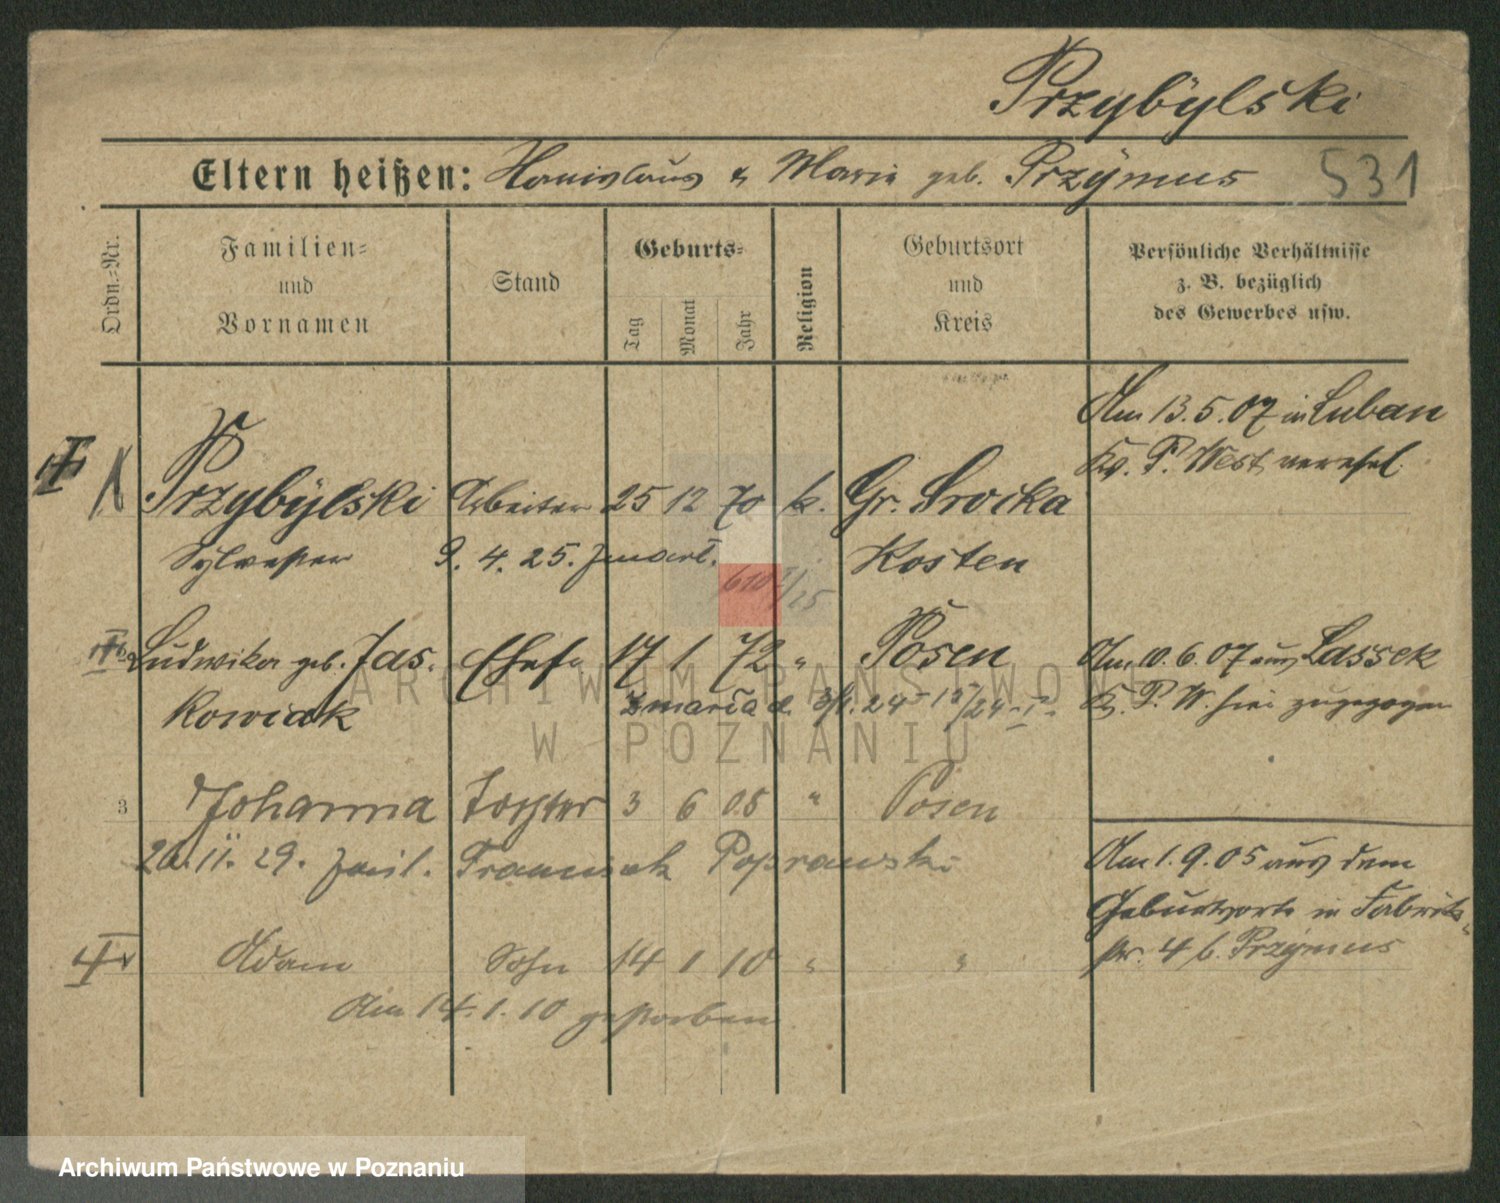 Przybÿlski
Eltern heißen: Stanislaus & Marie geb. Przÿmus 531
Ordn.=Nr.
Familien=
und
Vornamen
Stand
Geburts=
Tag
Monat
Jahr
Religion
Geburtsort
und
Kreis
Persönliche Verhältnisse
z. B. bezüglich
des Gewerbes usw.
Am 13.5.07 in Luban
Kr. P. West verehel.
Przybÿlski Arbeiter 25 12 70 k. Gr. Srocka
Sylvester 9. 4. 25. zmarł. Kosten
Ludwika geb. Jas. Ehefr 17 1 72 " Posen
kowiak zmarła d. 3/1. 24
Am 10.6.07 aus Lassek
Kr. P. W. hier zugezogen
3 Johanna Tochter 3 6 05 " Posen
20. 11. 29. Franciszek Poprawski
Am 1.9.05 aus dem
Geburtsorte in Fabrik-
str. 4 b. Przÿmus
Adam Sohn 14 1 10 " "
Am 14.1.10 gestorben
ARCHIWUM PAŃSTWOWE
W POZNANIU
Archiwum Państwowe w Poznaniu